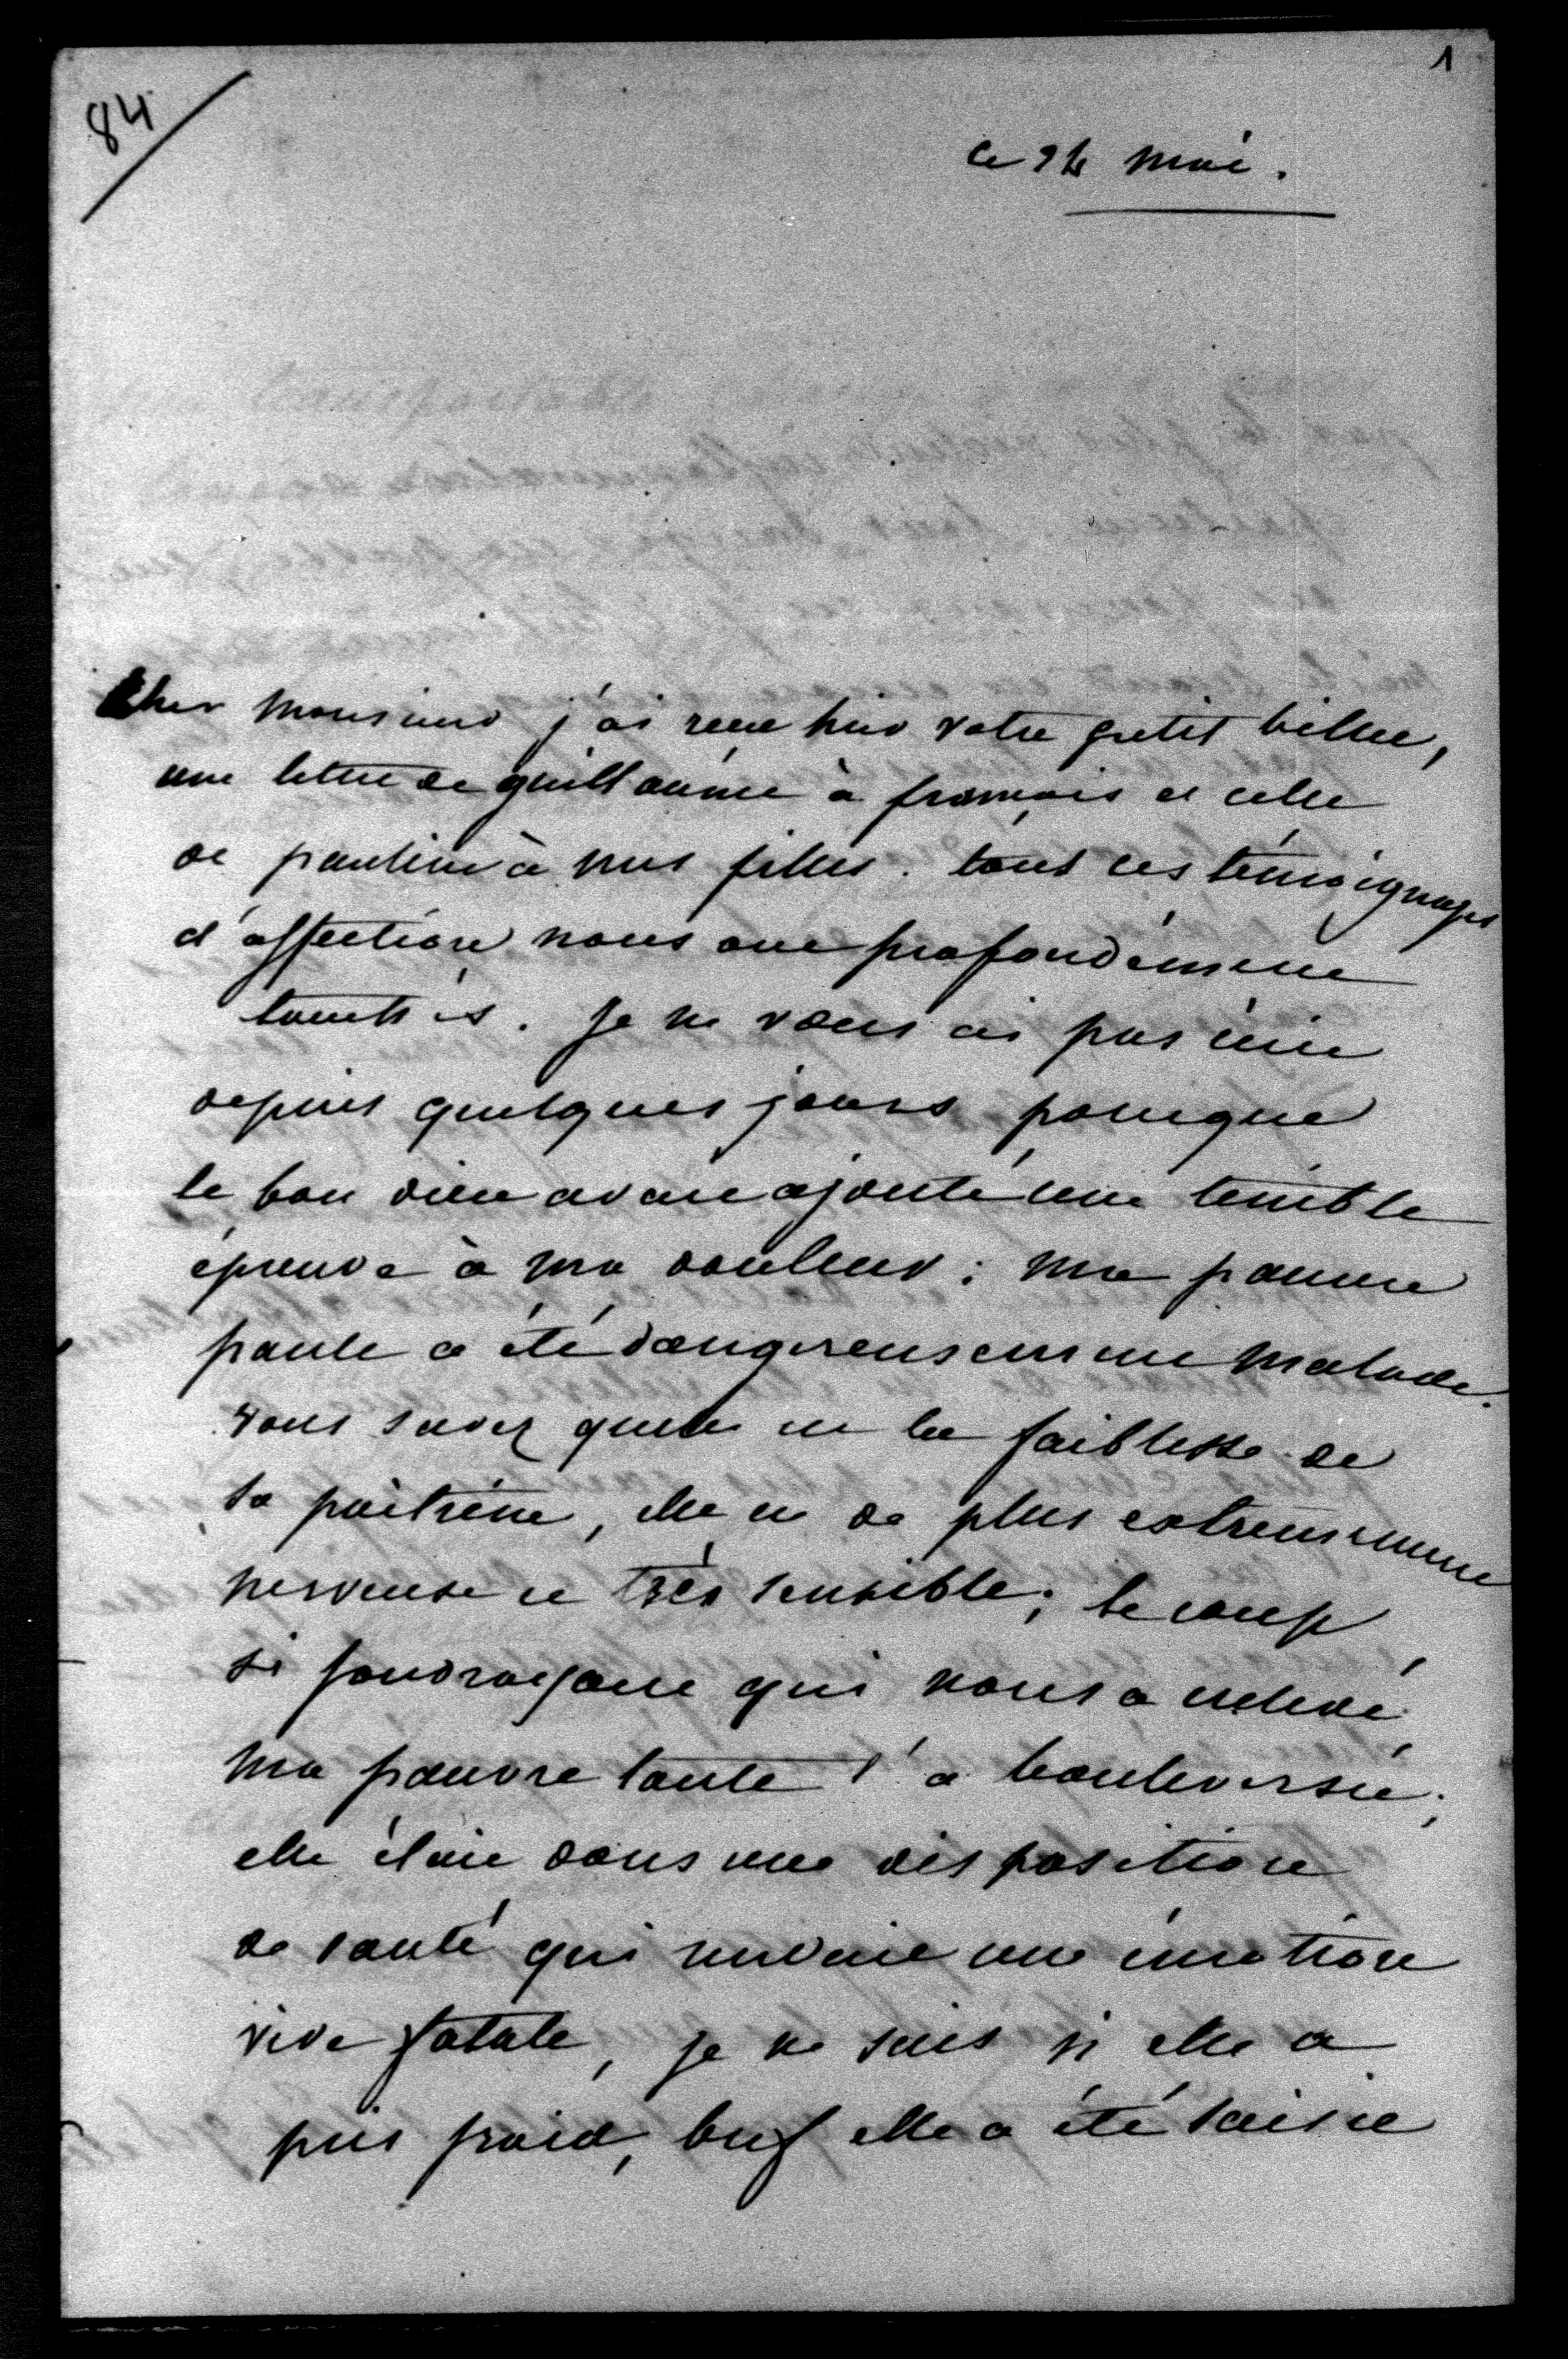 1
84
ce 24 mai.
Cher monsieur j'ai recu hier votre petit billet,
une lettre de guillaume à françois et celle
de pauline à mes filles. tous ces témoignages
d'affection nous ont profondément
touchés. Je ne vous ai pas écrit
depuis quelques jours parceque
le bon dieu avait ajouté une terrible
épreuve à ma douleur : ma pauvre
paule a été dangereusement malade.
vous savez quelle est la faiblesse de
sa poitrine, elle est de plus extremement
nerveuse et très sensible ; le coup
si foudroyant qui nous a enlevé
ma pauvre tante l'a bouleversée ;
elle était dans une disposition
de santé qui rendait une émotion
vive fatale, je ne sais si elle a
pris froid, bref elle a été saisie